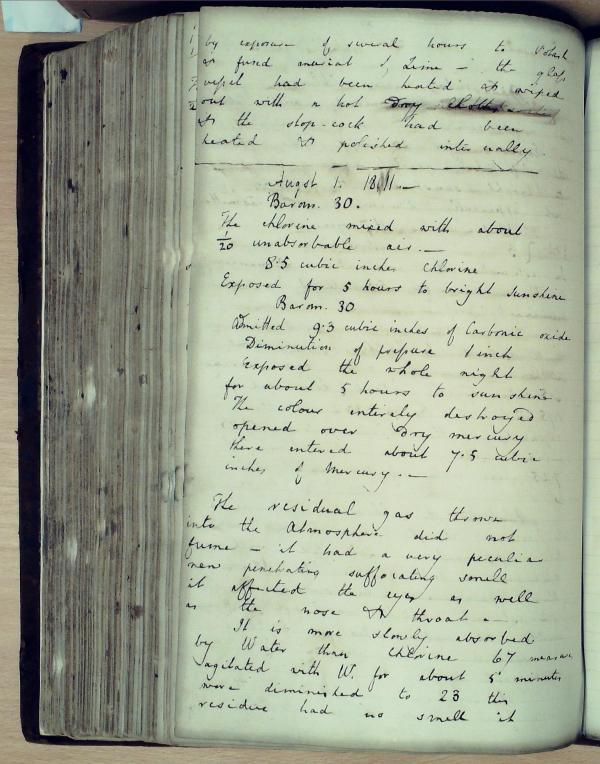 by exposure of several hours to Potash
or fused muriat of Lime – the glass
vessel had been heated & wiped
out with a hot Dry cloth
& the stop-cock had been
heated & polished internally.
Augst 1. 1811 –
Barom. 30.
The chlorine mixed with about
1/20 unabsorbable air. —
8.5 cubic inches chlorine
Exposed for 5 hours to bright sunshine
Barom. 30
Admitted 9.3 cubic inches of Carbonic oxide
Diminution of pressure 1 inch
Exposed the whole night
for about 5 hours to sunshine
The colour interely destroyed
opened over Dry mercury
there entered about 7.5 cubic
inches of Mercury. —
The residual gas thrown
into the Atmosphere did not
fume – it had a very peculiar
new penetrating suffocating smell
it affected the eyes as well
as the nose & throat –
It is more slowly absorbed
by Water than chlorine 67 measures
agitated with W. for about 5 minutes
were diminished to 23 this
residue had no smell it